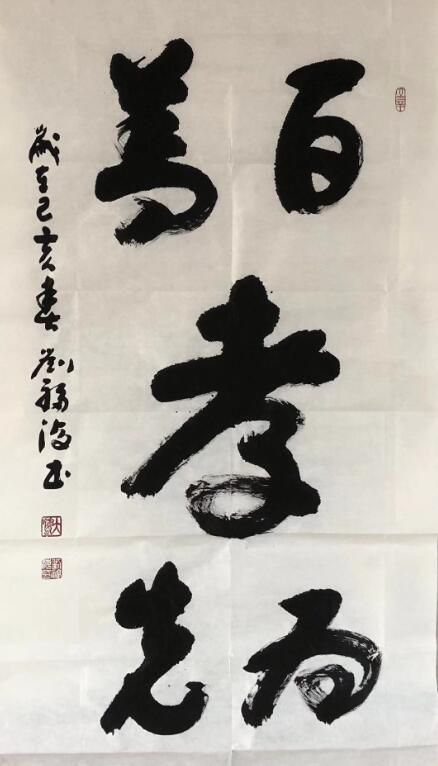 百善
孝
为先
歲在己亥春劉福海書